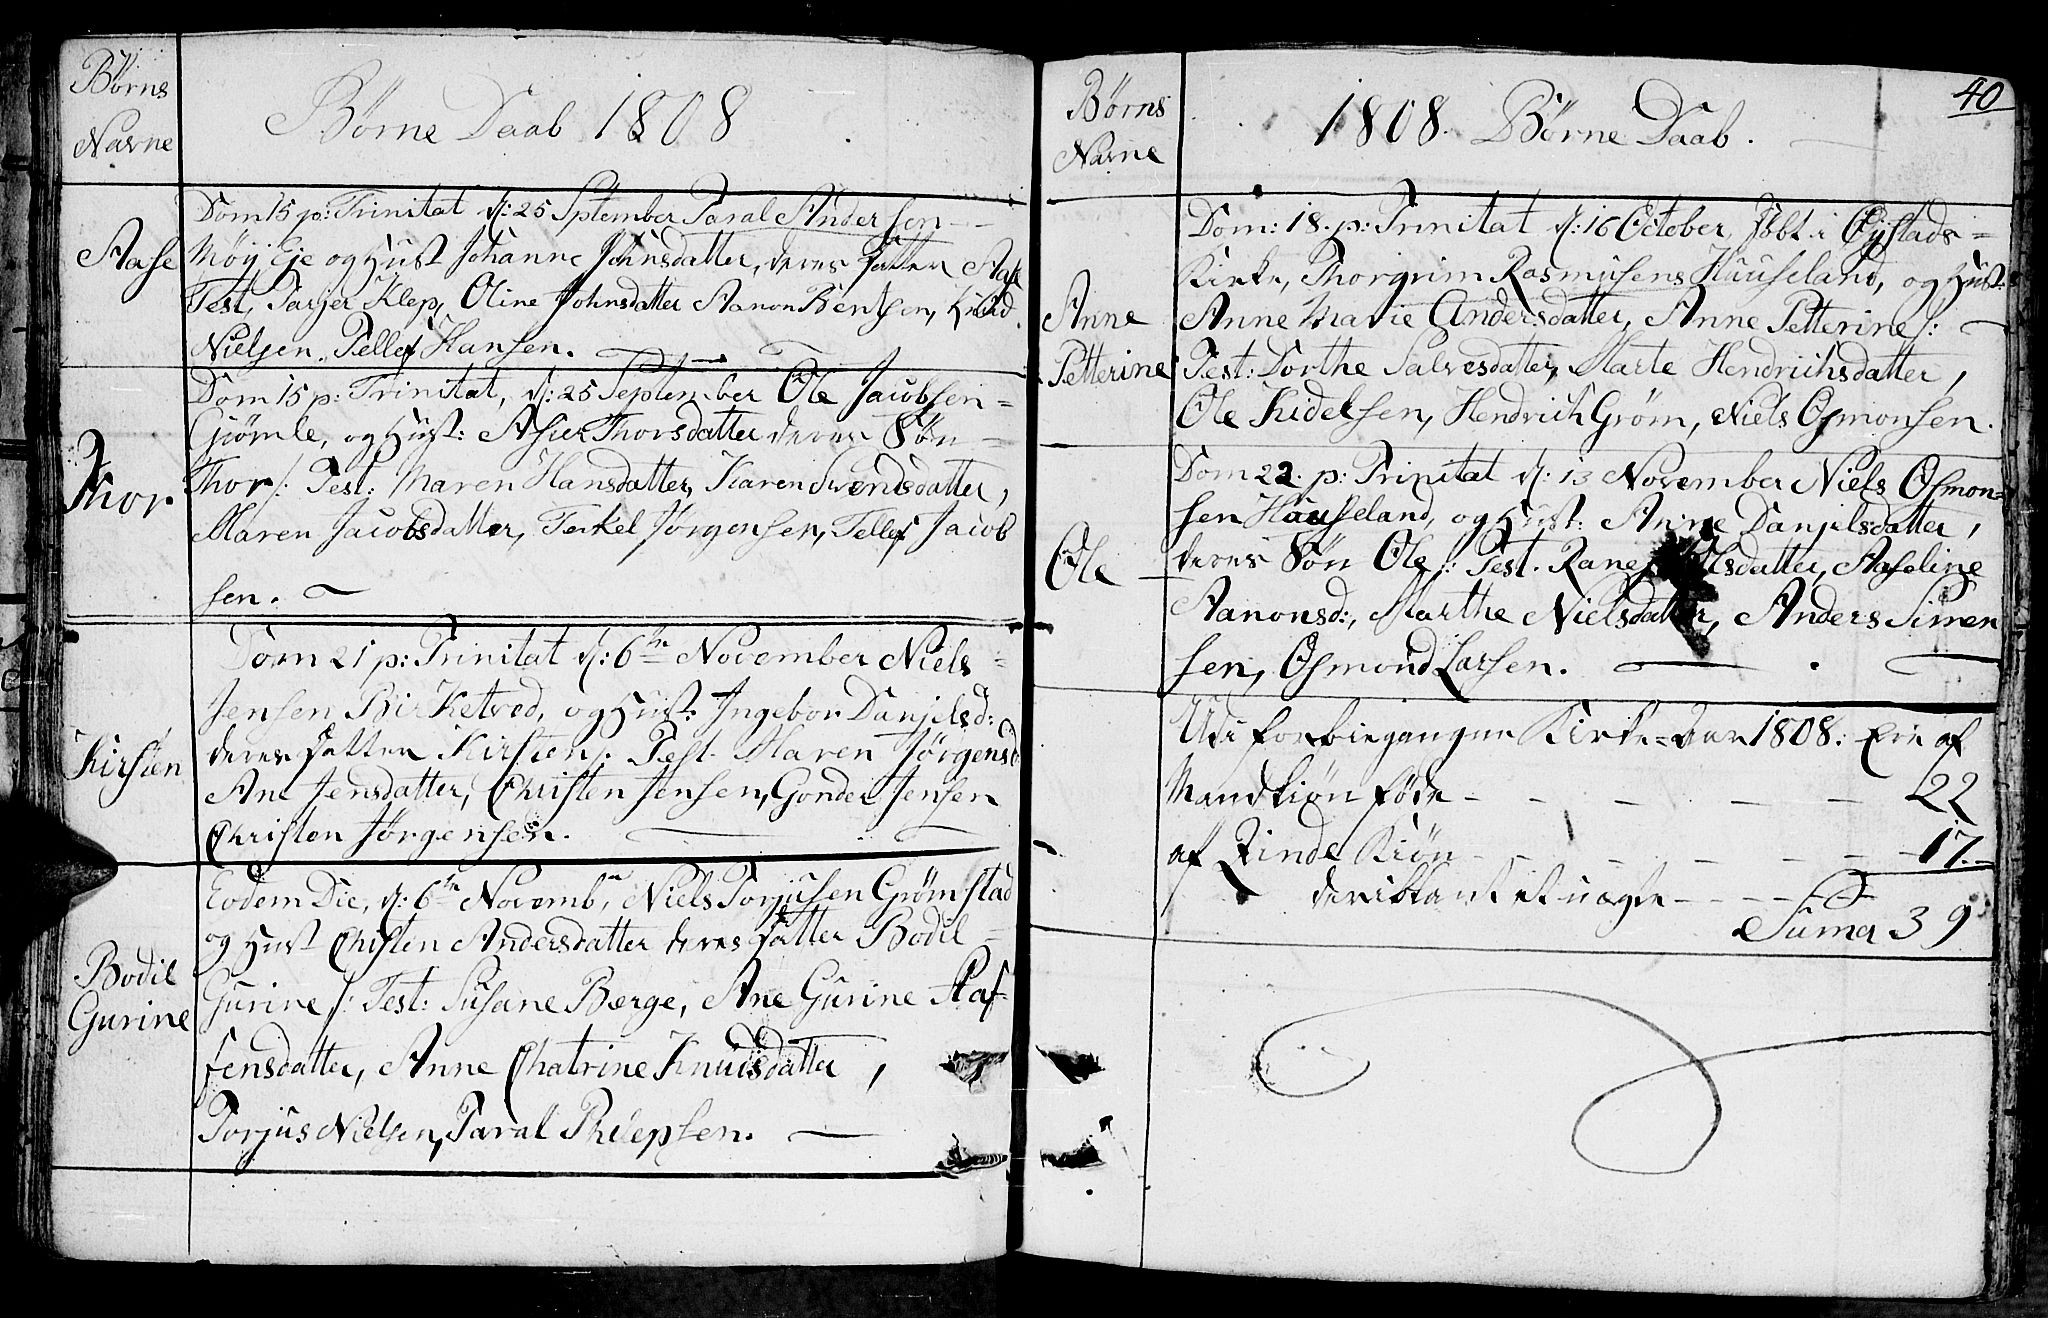 Børns
Navne
Børne Daab 1808
Aase
Dom 15 p: Trinitat d: 25 Sptember Taral Andersen
Møy Eje og Hust Johanne Johnsdatter, deres Datter Aase
Test, Tarjer Klep, Oline Johnsdatter Aanon Bentsen, Knud
Nielsen, Tellef Hansen.
Thor
Dom 15 p: Trinitat, d: 25 September Ole Jacobsen
Gjømle, og Hust: Thorsdatter deres Søn
Thor /: Test: Maren Hansdatter, Karen Svendsdatter,
Maren Jacobsdatter, Terkel Jørgensen, Tellef Jacob
sen.
Kirsten
Dom 21 p: Trinitat d: 6te November Niels
Jensen Birketved, og Hust: Ingebor Danjelsd:
deres Datter Kirsten /: Test. Maren Jørgensd
Ane Jensdatter, Christen Jensen, Gonder Jensen
Christen Jørgensen.
Bodil
Gurine
Eodem Die, d: 6te Novemb, Niels Torjusen Grømstad
og Hust Christen Andersdatter deres Datter Bodil
Gurine /: Test: Susane Berge, Ane Gurine Staf-
fensdatter, Anne Chatrine Knudsdatter,
Torjus Nielsen, Taral Philepsen.
40
Børns
Navne
1808. Børne Daab.
Anne
Petterine
Dom: 18. p: Trinitat d: 16 October, Døbt i Øystads
Kirke, Thorgrim Rasmusens Hauseland, og Hust:
Anne Marie Andersdatter, Anne Petterine /:
Test: Dorthe Salvesdatter, Marte Hendrichsdatter,
Ole Kidelsen, Hendrich Grøm, Niels Osmonsen.
Ole
Dom 22. p: Trinitat d: 13 November Niels Osmon-
sen Hauseland, og Hust: Anne Danjelsdatter,
deres Søn Ole /: Test. Aaseline
Aanonsd:, Marthe Nielsdatter, Anders Simen
sen, Osmond Larsen.
Udi forbiegangne Kirke-Aar 1808: Ere af
Mandkiøn føde - - - - - 22
af Qvinde Kiøn - - - - - 17.
deriblant et uægte - - - -
Suma 39